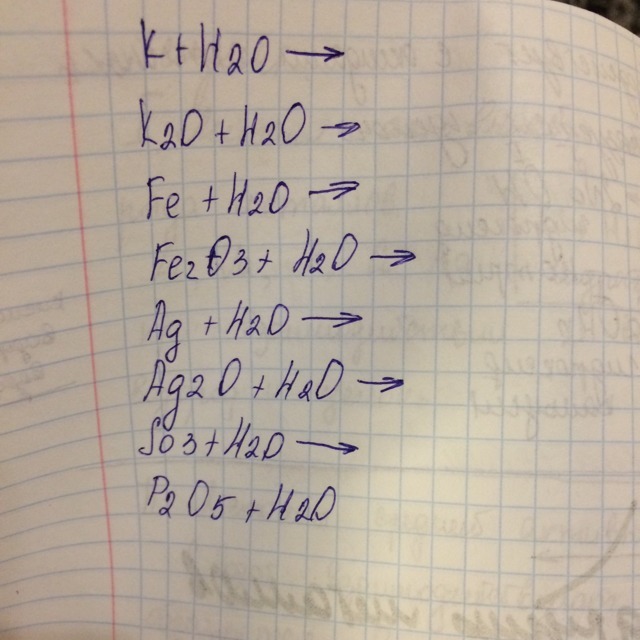 K+H2O →
K2O + H2O →
Fe + H2O →
Fe2O3 + H2O →
Ag + H2O →
Ag2O + H2O →
SO3 + H2O →
P2O5 + H2O